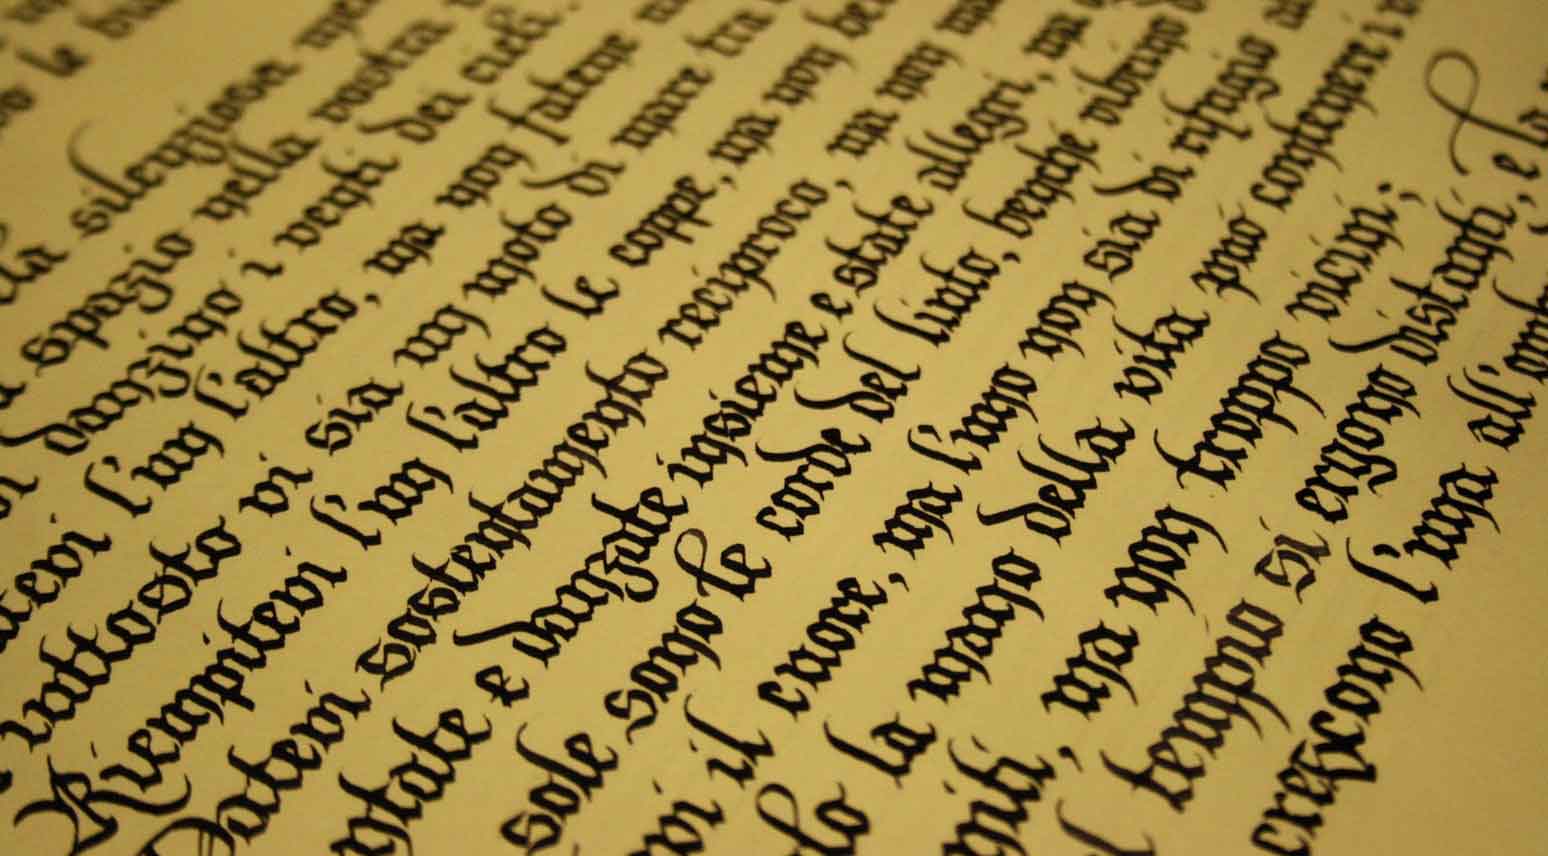 o le
silenziosa
spazio nella vostra
danzino i venti dei cieli.
atevi l'un l'altro, ma non fatene
iuttosto vi sia un moto di mare tra
Riempitevi l'un l'altro le coppe, ma non be
Datevi sostentamento reciproco, ma non
ntate e danzate insieme e state allegri, ma
sole sono le corde del liuto, benché vibrino
vi il cuore, ma l'uno non sia di rifugio
lo la mano della vita può contenere i
niti, ma non troppo vicini;
l tempio si ergono distanti, e la
crescono l'una all'omb